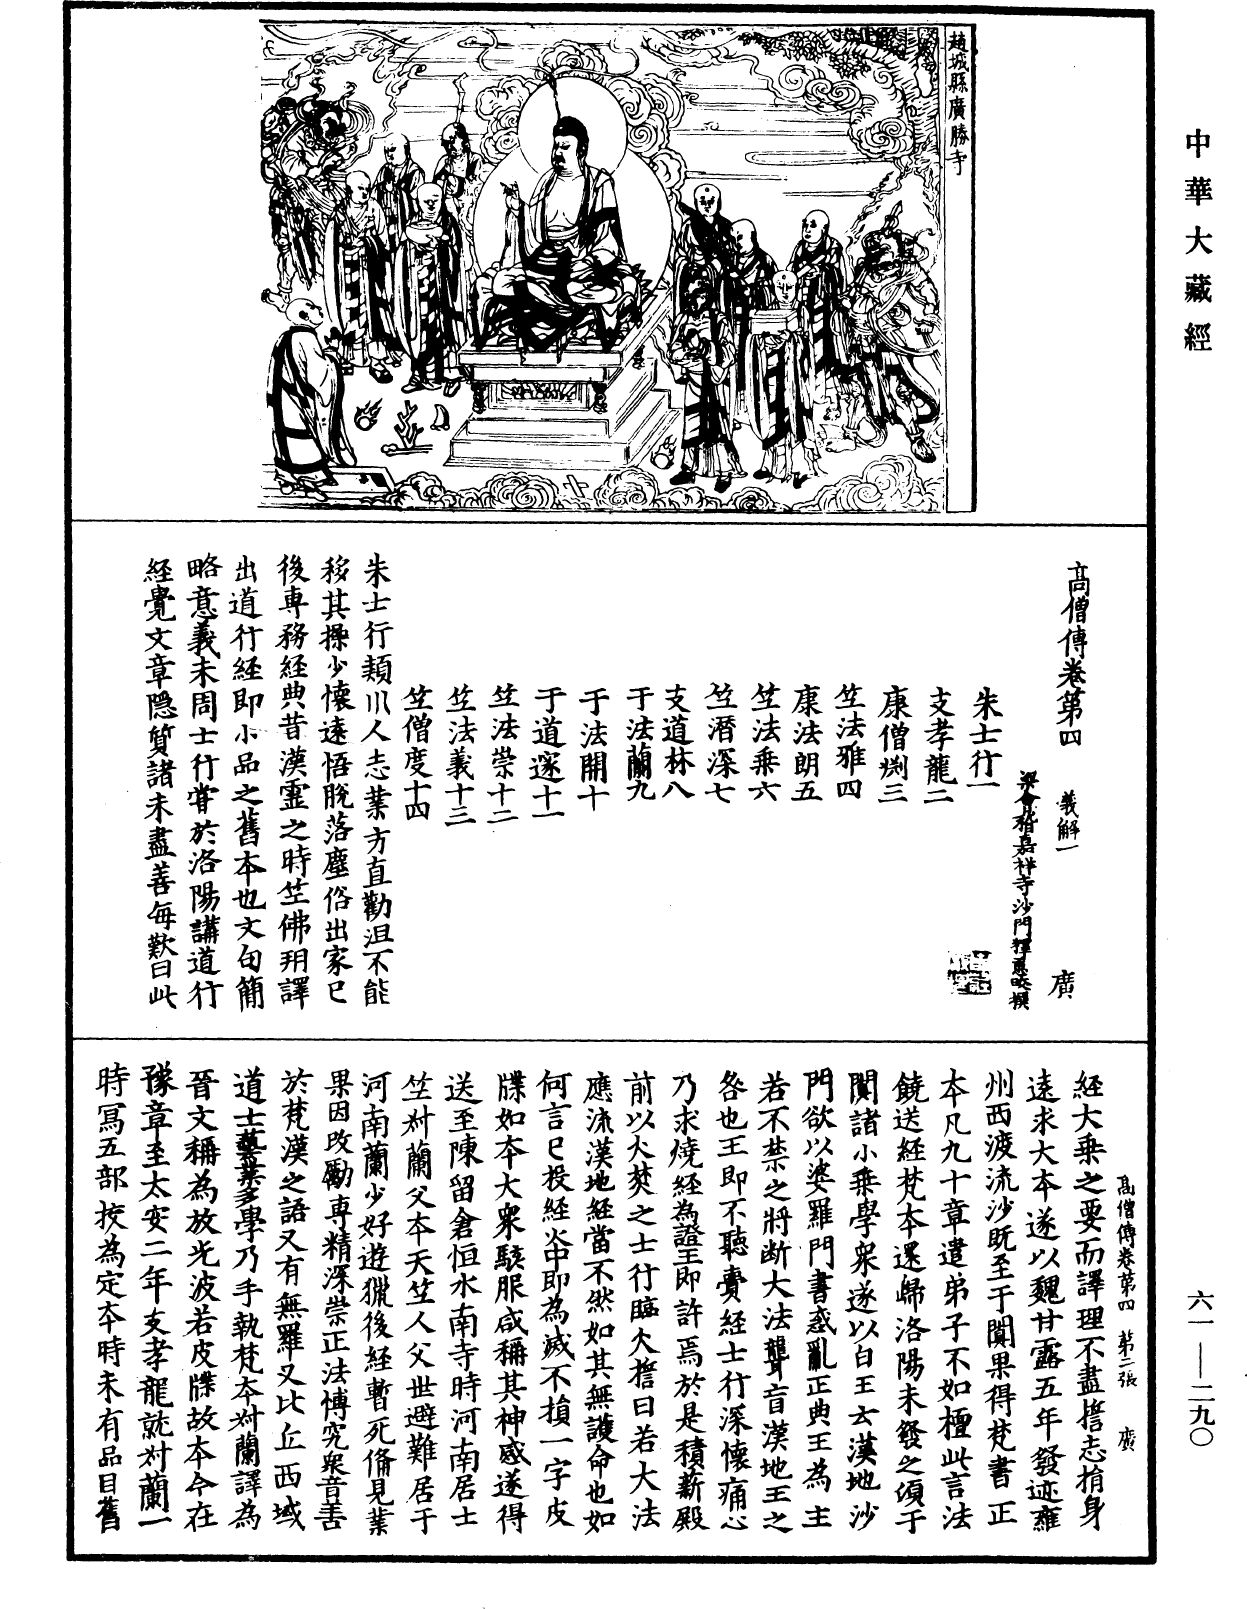 中華大藏經
趙城縣廣勝寺
高僧傳卷第四 義解一 廣
梁會稽嘉祥寺沙門釋慧皎撰
朱士行一
支孝龍二
康僧渕三
竺法雅四
康法朗五
竺法乗六
竺潛深七
支道林八
于法蘭九
于法開十
于道邃十一
竺法崇十二
竺法義十三
竺僧度十四
朱士行頴川人志業方直勸沮不能
移其操少懷遠悟脫落塵俗出家已
後專務經典昔漢靈之時竺佛朔譯
出道行經即小品之舊本也文句簡
略意義未周士行甞於洛陽講道行
經覺文章隱質諸未盡善每歎曰此
經大乗之要而譯理不盡誓志捐身
遠求大本遂以魏甘露五年發迹雍
州西渡流沙旣至于闐果得梵書正
本凡九十章遣弟子不如檀此言法
饒送經梵本還歸洛陽未發之頃于
闐諸小乗學衆遂以白王云漢地沙
門欲以婆羅門書惑亂正典王為主
若不禁之將斷大法聾盲漢地王之
咎也王即不聽賷經士行深懷痛心
乃求燒經為證王即許焉於是積薪殿
前以火焚之士行臨火誓曰若大法
應流漢地經當不然如其無護命也如
何言已投經火中即為滅不損一字皮
牒如本大衆駭服咸稱其神感遂得
送至陳留倉恒水南寺時河南居士
竺对蘭父本天竺人父世避難居于
河南蘭少好遊獵後經暫死備見業
果因改勵專精深崇正法博究衆音善
於梵漢之語又有無羅叉比丘西域
道士藝業多學乃手執梵本对蘭譯為
晉文稱為放光波若皮牒故本今在
豫章至太安二年支孝龍就对蘭一
時冩五部挍為定本時未有品目舊
高僧傳卷第四 第二張 廣
六一——二九〇